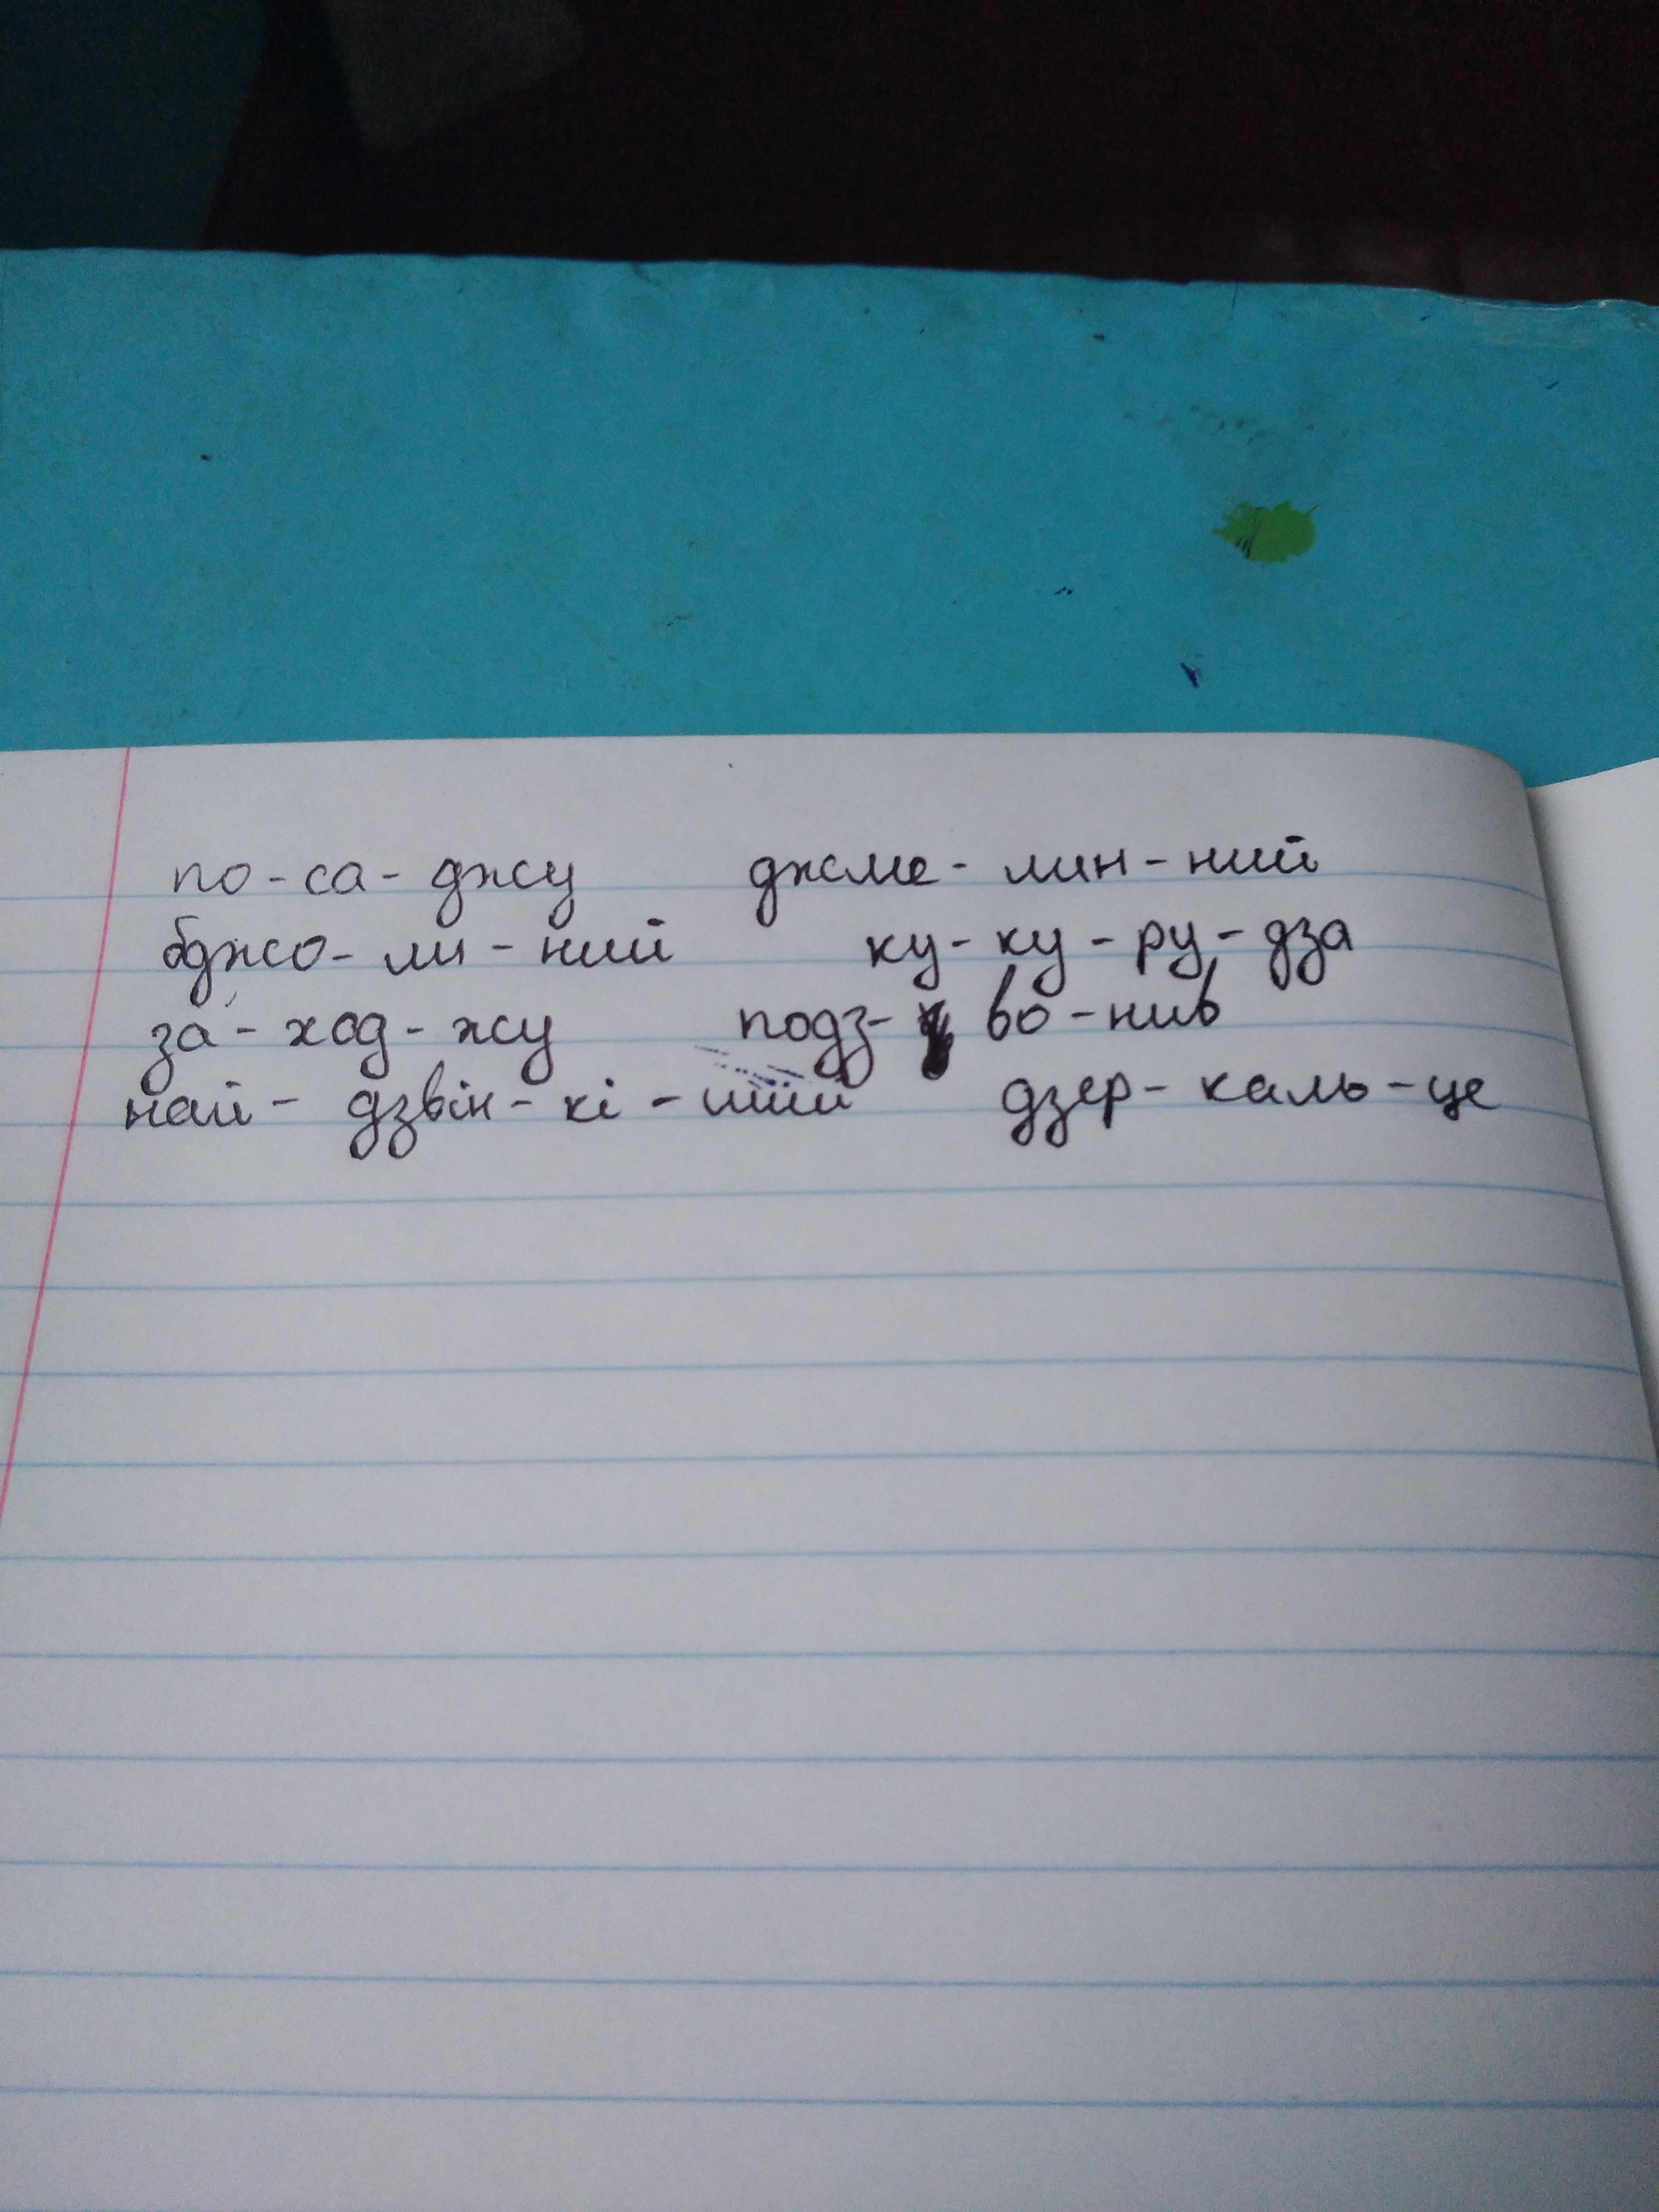 по-са-джу джме-лин-ний
бджо-ли-ний ку-ку-ру-дза
за-ход-жу подз-во-нив
най-дзвін-кі-ший дзер-каль-це